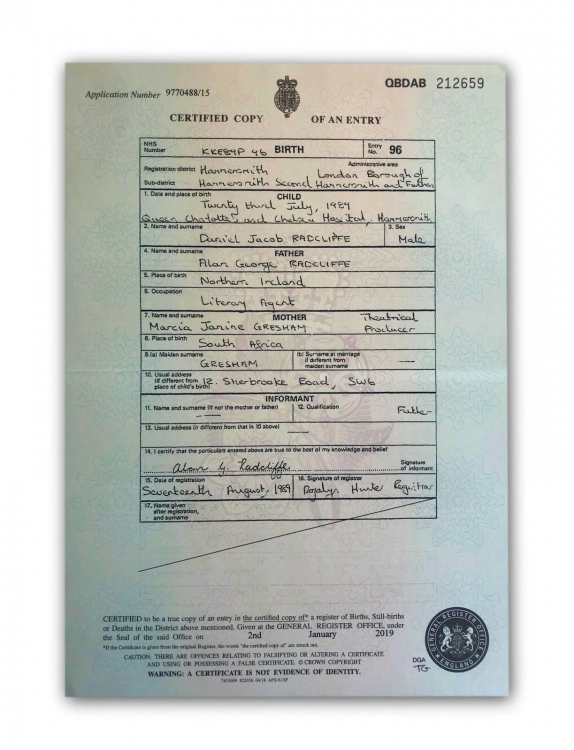 QBDAB 212659
Application Number 9770488/15
CERTIFIED COPY OF AN ENTRY
NHS Number BIRTH Entry No. 96
Administrative area
Registration district Hammersmith London Borough of
Sub-district Hammersmith Second Hammersmith and Fulham
1. Date and place of birth CHILD
Twenty third July, 1989
Queen Charlotte's and Chelsea Hospital, Hammersmith
2. Name and surname 3. Sex
Daniel Jacob RADCLIFFE Male
4. Name and surname FATHER
Alan George RADCLIFFE
5. Place of birth
Northern Ireland
6. Occupation
Literary Agent
7. Name and surname MOTHER Theatrical
Marcia Janine GRESHAM Producer
8. Place of birth
South Africa
9.(a) Maiden surname (b) Surname at marriage if different from maiden surname
GRESHAM —
10. Usual address (if different from place of child's birth) 12. Sherbrooke Road, SW6
INFORMANT
11. Name and surname (if not the mother or father) 12. Qualification
— Father
13. Usual address (if different from that in 10 above)
—
14. I certify that the particulars entered above are true to the best of my knowledge and belief
Alan G. Radcliffe Signature of informant
15. Date of registration 16. Signature of registrar
Seventeenth August, 1989 Rosalyn Registrar
17. Name given after registration, and surname
CERTIFIED to be a true copy of an entry in the certified copy of* a register of Births, Still-births
or Deaths in the District above mentioned. Given at the GENERAL REGISTER OFFICE, under
the Seal of the said Office on 2nd January 2019
*If the Certificate is given from the original Register, the words "the certified copy of" are struck out.
CAUTION: THERE ARE OFFENCES RELATING TO FALSIFYING OR ALTERING A CERTIFICATE
AND USING OR POSSESSING A FALSE CERTIFICATE. © CROWN COPYRIGHT
WARNING: A CERTIFICATE IS NOT EVIDENCE OF IDENTITY.
GENERAL REGISTER OFFICE
ENGLAND
DGA